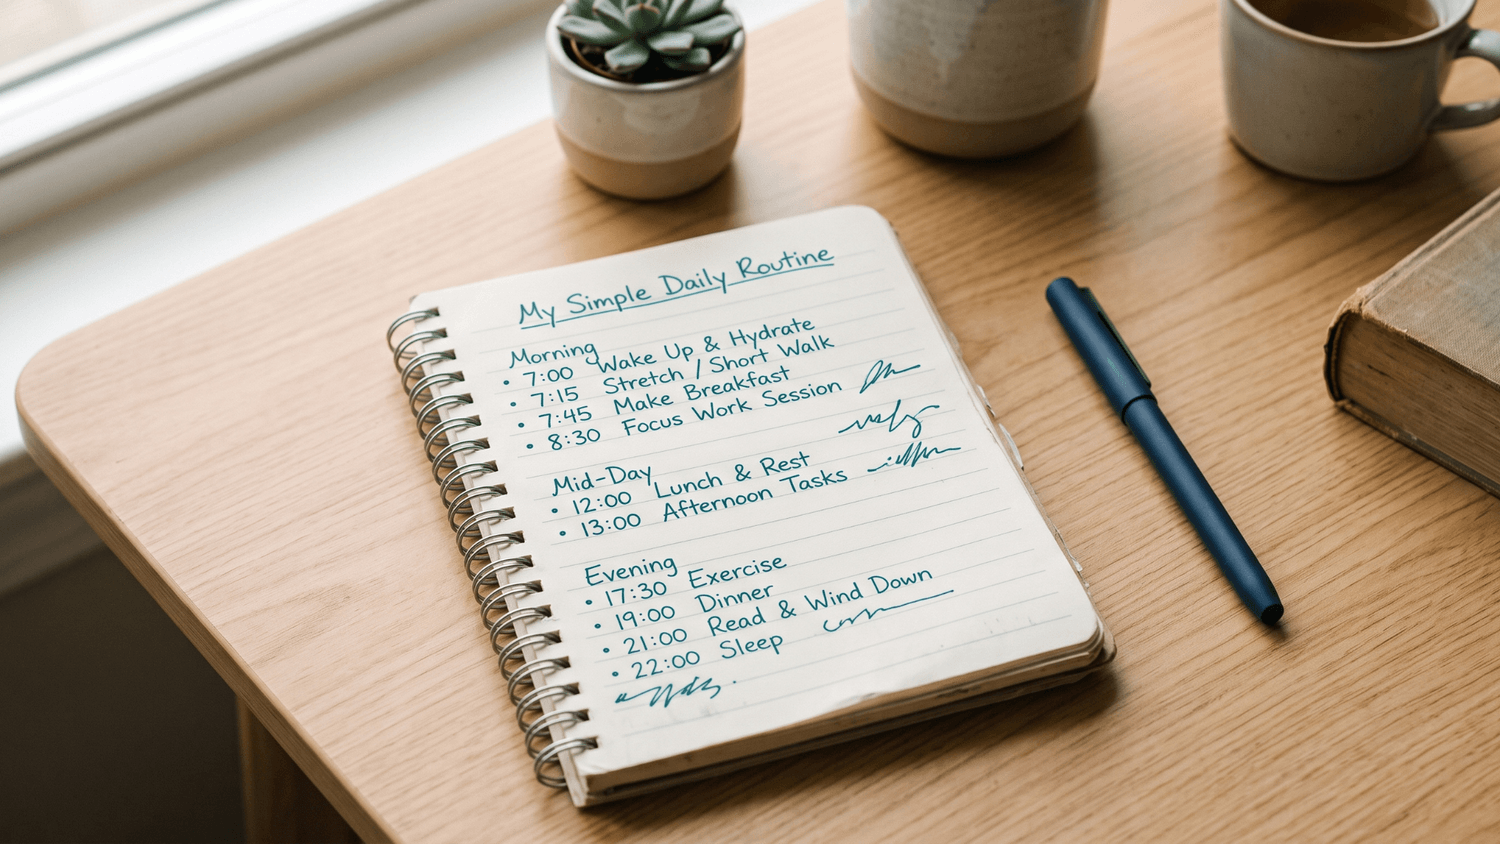 My Simple Daily Routine
Morning
• 7:00 Wake Up & Hydrate
• 7:15 Stretch / Short Walk
• 7:45 Make Breakfast
• 8:30 Focus Work Session
Mid-Day
• 12:00 Lunch & Rest
• 13:00 Afternoon Tasks
Evening
• 17:30 Exercise
• 19:00 Dinner
• 21:00 Read & Wind Down
• 22:00 Sleep